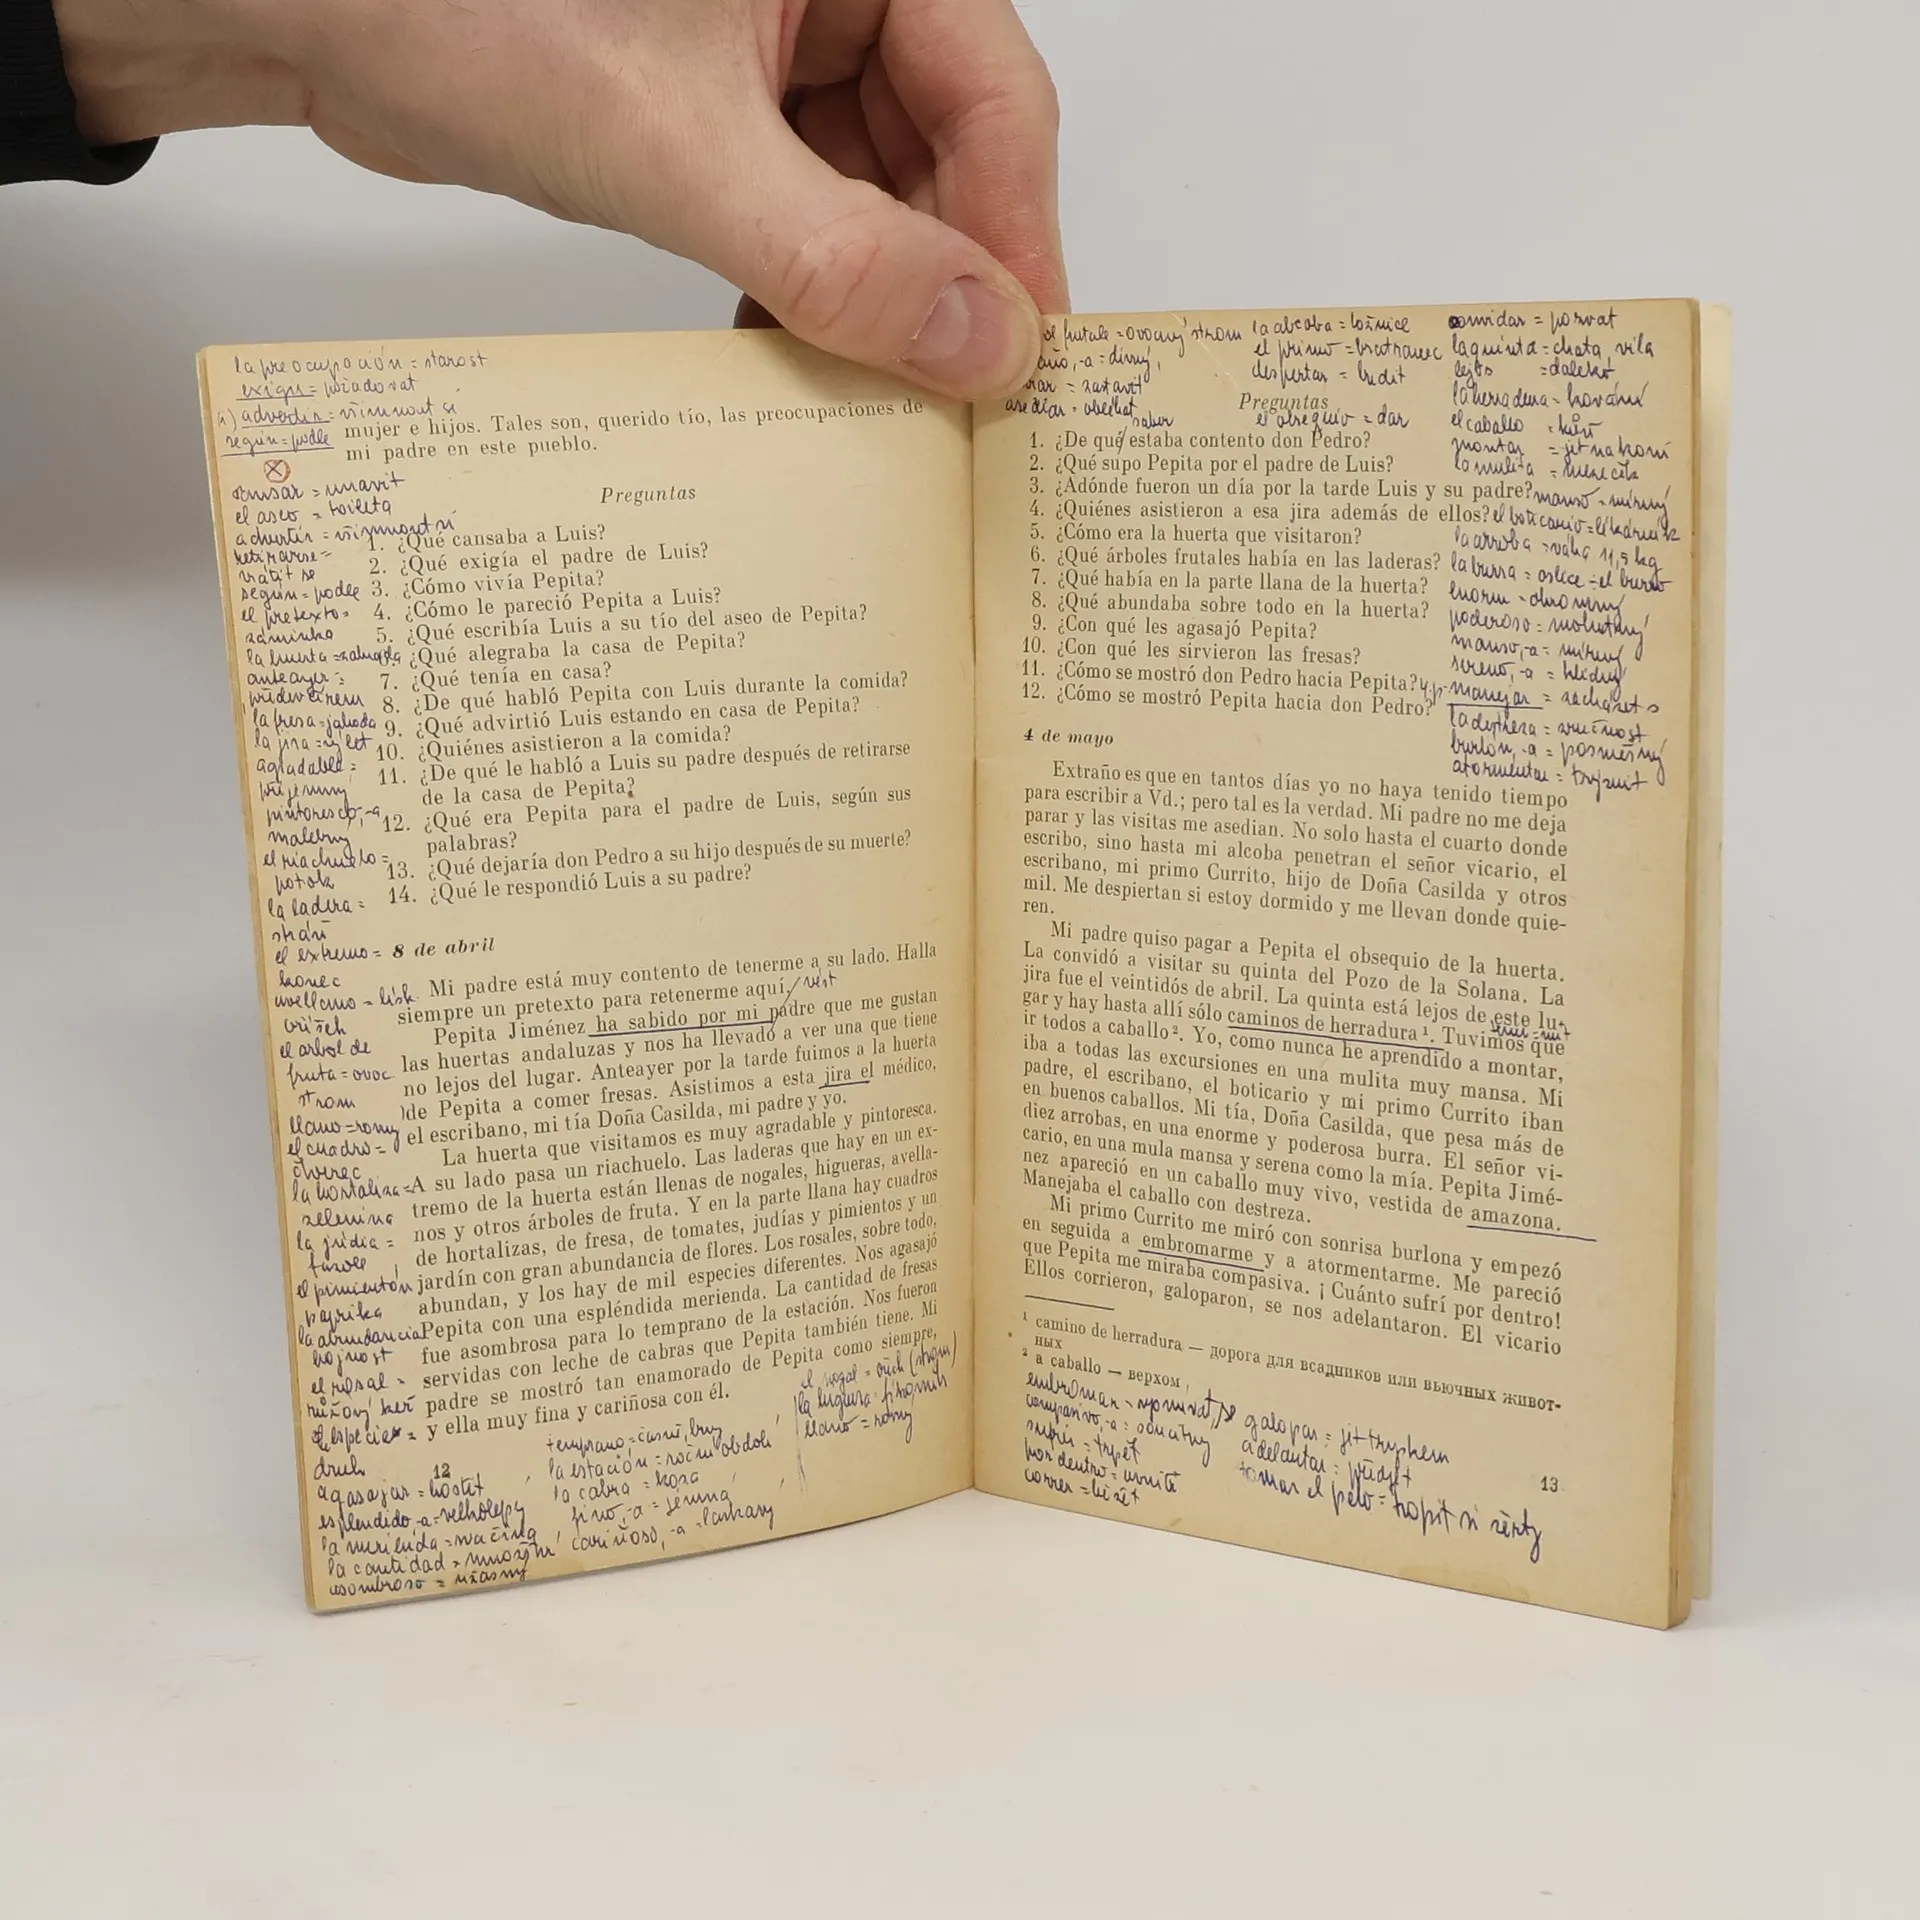 la preocupación = starost
exigir = požadovat
advertir = všimnout si
según = podle
mujer e hijos. Tales son, querido tío, las preocupaciones de
mi padre en este pueblo.
Preguntas
1. ¿Qué cansaba a Luis?
2. ¿Qué exigía el padre de Luis?
3. ¿Cómo vivía Pepita?
4. ¿Cómo le pareció Pepita a Luis?
5. ¿Qué escribía Luis a su tío del aseo de Pepita?
¿Qué alegraba la casa de Pepita?
7. ¿Qué tenía en casa?
8. ¿De qué habló Pepita con Luis durante la comida?
9. ¿Qué advirtió Luis estando en casa de Pepita?
10. ¿Quiénes asistieron a la comida?
11. ¿De qué le habló a Luis su padre después de retirarse
de la casa de Pepita?
12. ¿Qué era Pepita para el padre de Luis, según sus
palabras?
13. ¿Qué dejaría don Pedro a su hijo después de su muerte?
14. ¿Qué le respondió Luis a su padre?
8 de abril
Mi padre está muy contento de tenerme a su lado. Halla
siempre un pretexto para retenerme aquí.
Pepita Jiménez ha sabido por mi padre que me gustan
las huertas andaluzas y nos ha llevado a ver una que tiene
no lejos del lugar. Anteayer por la tarde fuimos a la huerta
de Pepita a comer fresas. Asistimos a esta jira el médico,
el escribano, mi tía Doña Casilda, mi padre y yo.
La huerta que visitamos es muy agradable y pintoresca.
A su lado pasa un riachuelo. Las laderas que hay en un ex-
tremo de la huerta están llenas de nogales, higueras, avella-
nos y otros árboles de fruta. Y en la parte llana hay cuadros
de hortalizas, de fresa, de tomates, judías y pimientos y un
jardín con gran abundancia de flores. Los rosales, sobre todo,
abundan, y los hay de mil especies diferentes. Nos agasajó
Pepita con una espléndida merienda. La cantidad de fresas
fue asombrosa para lo temprano de la estación. Nos fueron
servidas con leche de cabras que Pepita también tiene. Mi
padre se mostró tan enamorado de Pepita como siempre,
y ella muy fina y cariñosa con él.
12
el aseo = toileta
advertir = všimnout si
retirarse =
vrátit se
según = podle
el pretexto =
záminka
la huerta = zahrada
anteayer =
předevčírem
la fresa = jahoda
la jira = výlet
agradable =
příjemný
pintoresco, -a
malebný
el riachuelo =
potok
la ladera =
stráň
el extremo =
konec
avellano = lísk.
ořišek
el arbol de
fruta = ovoc.
strom
llano = rovný
el cuadro =
čtverec
la hortaliza =
zelenina
la judía =
fazole
el pimientón
paprika
la abundancia
hojnost
el rosal =
růžový keř
especie =
druh
agasajar = hostit
espléndido, -a = velkolepý
la merienda = svačina
la cantidad = množství
asombroso = úžasný
la estación = roční období
la cabra = koza
fino, -a = jemná
cariñoso, -a = laskavý
el nogal = ořech (strom)
la higuera = fíkovník
llano = rovný
frutale = ovocný strom
= divný
= zastavit
asediar = obléhat
saber
la alcoba = ložnice
el primo = bratranec
despertar = budit
el obsequio = dar
convidar = pozvat
la quinta = chata, vila
lejos = daleko
la herradura = kování
el caballo = kůň
montar = jet na koni
la mulita = mezeček
manso = mírný
el boticario = lékárník
la arroba = váha 11,5 kg
la burra = oslice = el burro
enorme = ohromný
poderoso = mohutný
manso, -a = mírný
sereno, -a = klidný
manejar = zacházet s
la destreza = zručnost
burlón, -a = posměšný
atormentar = trýznit
Preguntas
1. ¿De qué estaba contento don Pedro?
2. ¿Qué supo Pepita por el padre de Luis?
3. ¿Adónde fueron un día por la tarde Luis y su padre?
4. ¿Quiénes asistieron a esa jira además de ellos?
5. ¿Cómo era la huerta que visitaron?
6. ¿Qué árboles frutales había en las laderas?
7. ¿Qué había en la parte llana de la huerta?
8. ¿Qué abundaba sobre todo en la huerta?
9. ¿Con qué les agasajó Pepita?
10. ¿Con qué les sirvieron las fresas?
11. ¿Cómo se mostró don Pedro hacia Pepita?
12. ¿Cómo se mostró Pepita hacia don Pedro?
4 de mayo
Extraño es que en tantos días yo no haya tenido tiempo
para escribir a Vd.; pero tal es la verdad. Mi padre no me deja
parar y las visitas me asedian. No solo hasta el cuarto donde
escribo, sino hasta mi alcoba penetran el señor vicario, el
escribano, mi primo Currito, hijo de Doña Casilda y otros
mil. Me despiertan si estoy dormido y me llevan donde quie-
ren.
Mi padre quiso pagar a Pepita el obsequio de la huerta.
La convidó a visitar su quinta del Pozo de la Solana. La
jira fue el veintidós de abril. La quinta está lejos de este lu-
gar y hay hasta allí sólo caminos de herradura¹. Tuvimos que
ir todos a caballo². Yo, como nunca he aprendido a montar,
iba a todas las excursiones en una mulita muy mansa. Mi
padre, el escribano, el boticario y mi primo Currito iban
en buenos caballos. Mi tía, Doña Casilda, que pesa más de
diez arrobas, en una enorme y poderosa burra. El señor vi-
cario, en una mula mansa y serena como la mía. Pepita Jimé-
nez apareció en un caballo muy vivo, vestida de amazona.
Manejaba el caballo con destreza.
Mi primo Currito me miró con sonrisa burlona y empezó
en seguida a embromarme y a atormentarme. Me pareció
que Pepita me miraba compasiva. ¡Cuánto sufrí por dentro!
Ellos corrieron, galoparon, se nos adelantaron. El vicario
¹ camino de herradura — дорога для всадников или вьючных живот-
ных
² a caballo — верхом
compasivo, -a = soucitný
sufrir = trpět
por dentro = uvnitř
correr = běžet
galopar = jet tryskem
adelantar = předjet
tomar el pelo = tropit si žerty
13